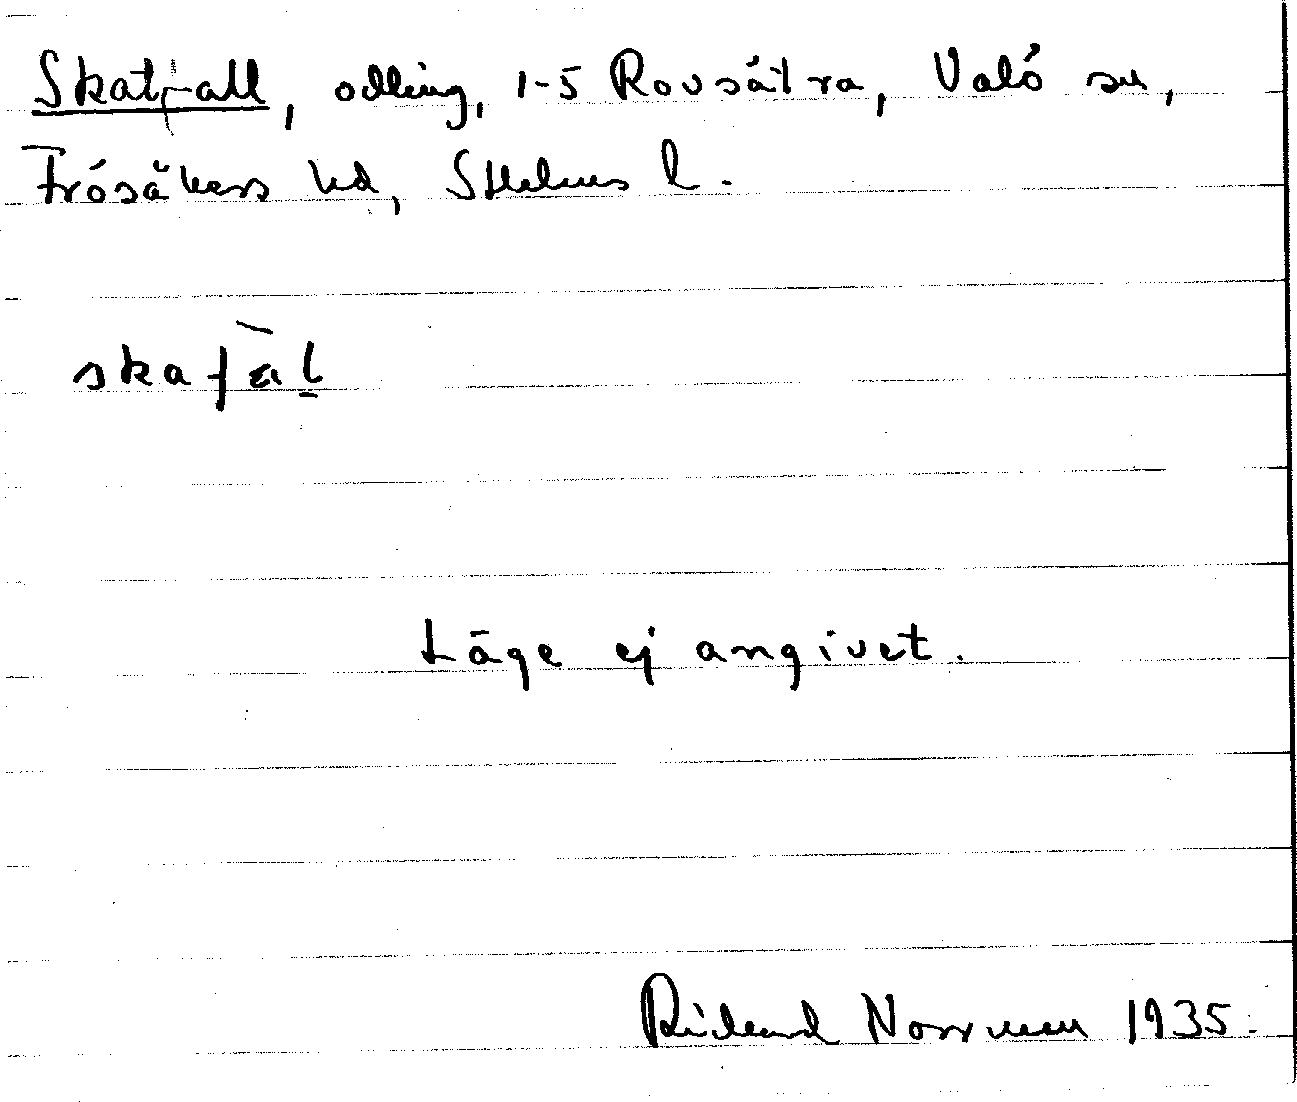 Skatfall, odling, 1-5 Rovsätra, Valö sn,
Frösåkers hd, Sthlms l.
skafàl
Läge ej angivet.
Rickard Norrman 1935.